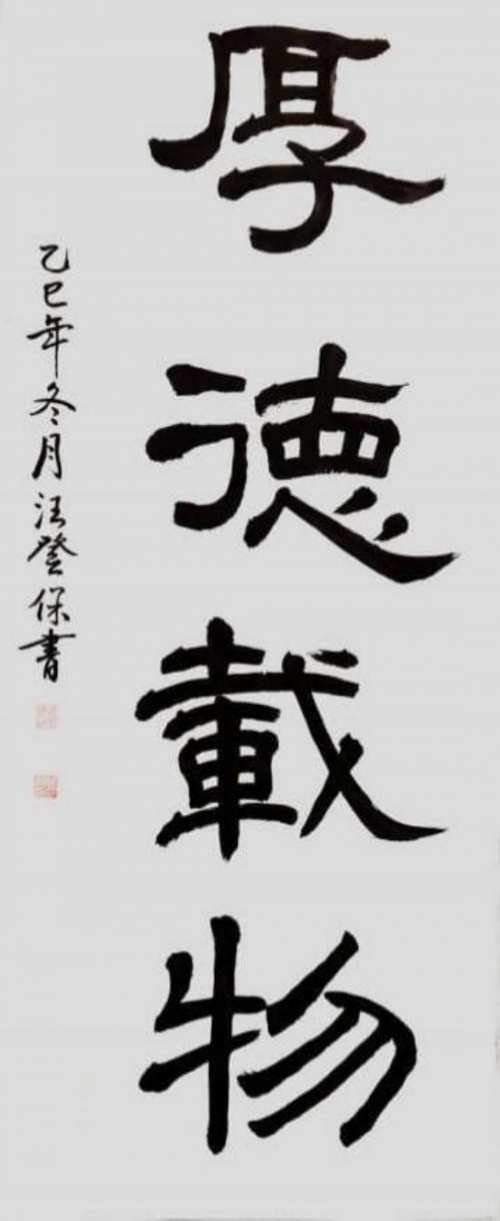 厚德載物
乙巳年冬月汪登保書